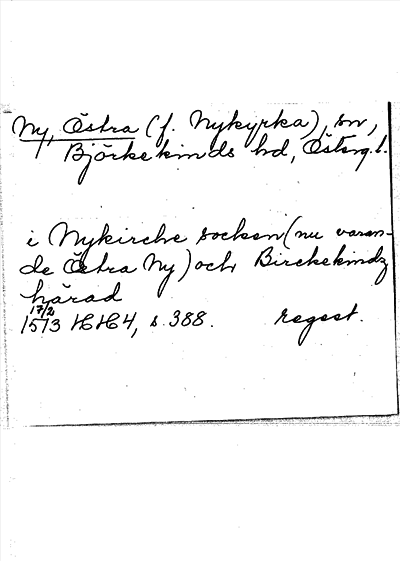 Ny, Östra (f. Nykyrka), sn,
Björkekinds hd, Österg.l.
i Nykirche socken (nu varan-
de Östra Ny) och Birckekindz
härad
17/2
1573 HH4, s. 388. regest.